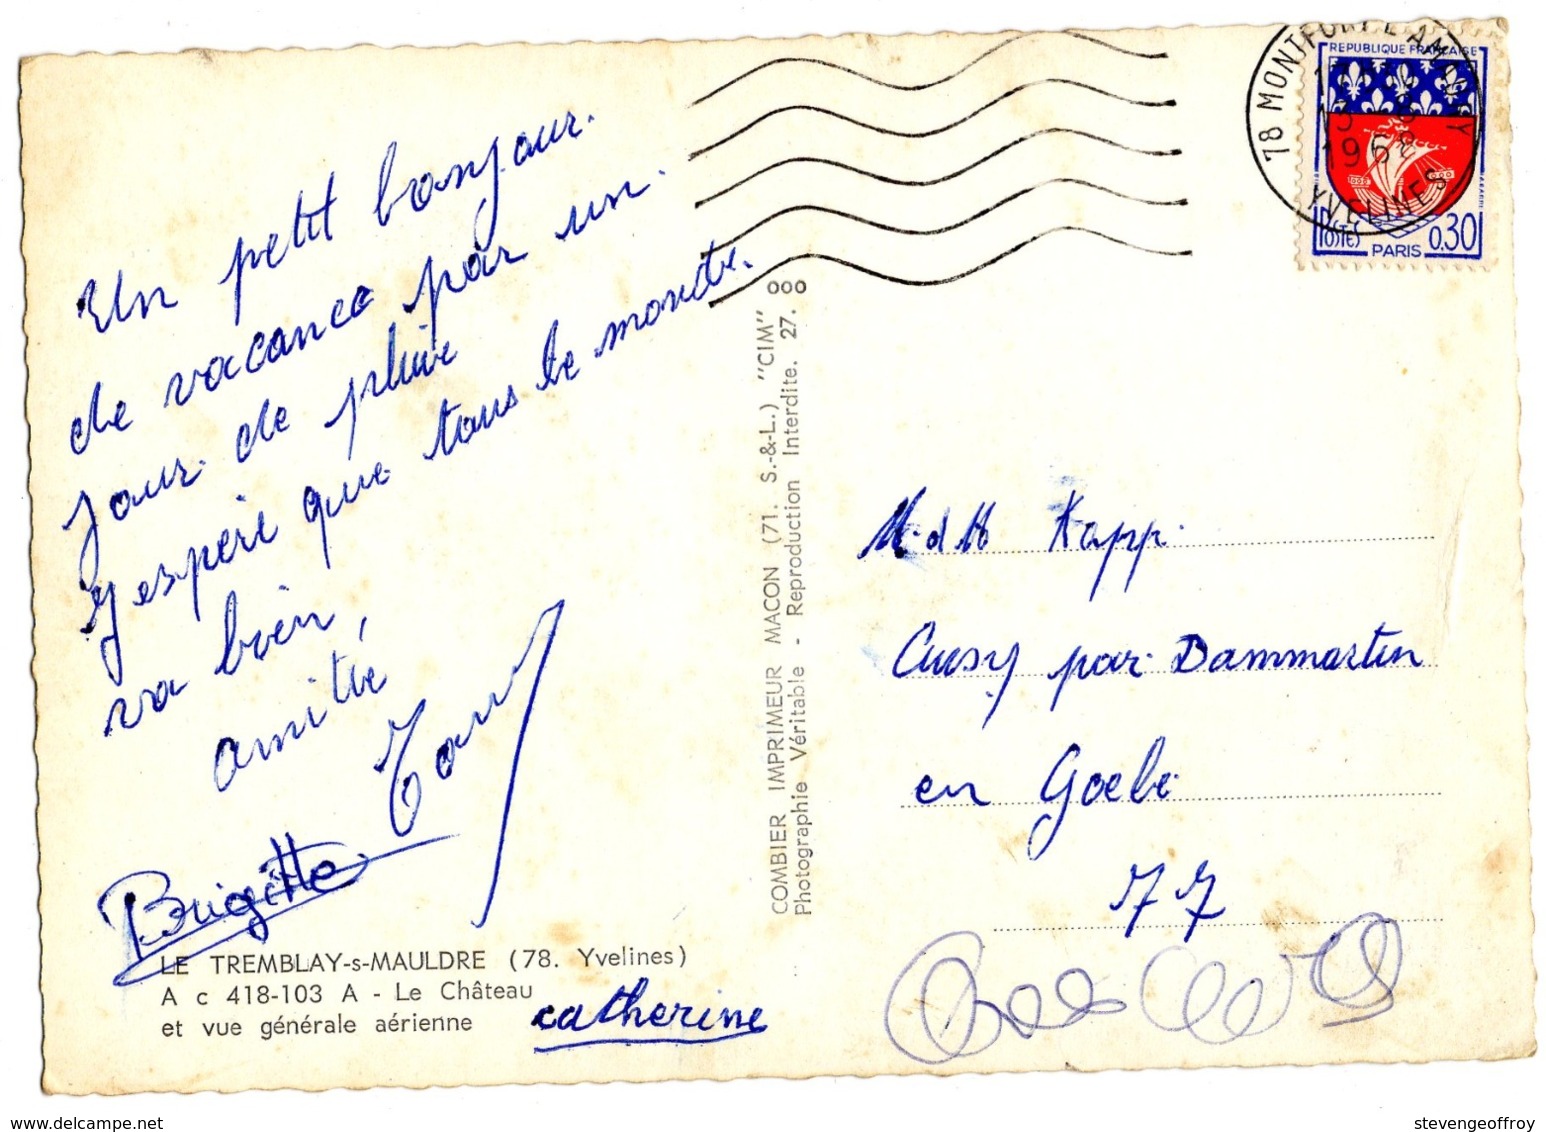 Un petit bonjour.
de vacance par un.
jour de pluie
j'espère que tous le monde.
va bien,
amitié
Tony
Brigitte
catherine
LE TREMBLAY-s-MAULDRE (78. Yvelines)
A c 418-103 A - Le Château
et vue générale aérienne
COMBIER IMPRIMEUR MACON (71. S.-&-L.) "CIM"
Photographie Véritable - Reproduction Interdite. 27. 000
78 MONTFORT L'AMAURY
1968
YVELINES
REPUBLIQUE FRANÇAISE
POSTES
PARIS 0,30
Kapp.
Cuisy par Dammartin
en Goële
77
delcampe.net
stevengeoffroy